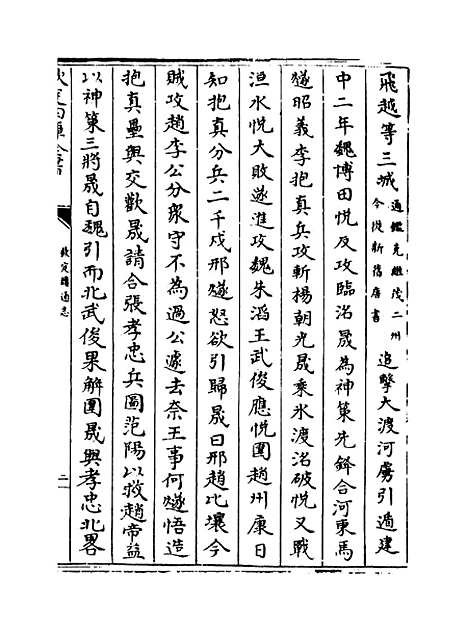 飛越等三城通鑑克維茂二州
今從新舊唐書追擊大渡河虜引遁建
中二年魏博田悅反攻臨洺晟為神策先鋒合河東馬
燧昭義李抱真兵攻斬楊朝光晟乘氷渡洺破悅又戰
洹水悅大敗遂進攻魏朱滔王武俊應悅圍趙州康日
知抱真分兵二千戍邢燧怒欲引歸晟曰邢趙比壤今
賊攻趙李公分衆守不為過公遽去奈王事何燧悟造
抱真壘與交歡晟請合張孝忠兵圖范陽以救趙帝益
以神策三將晟自魏引而北武俊果解圍晟與孝忠北畧
欽定四庫全書
欽定續通志
二